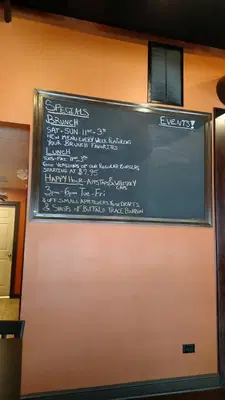 SPECIALS
EVENTS!
BRUNCH
SAT-SUN 11am-3pm
NEW MENU EVERY WEEK FEATURING
YOUR BRUNCH FAVORITES
LUNCH
TUES-FRI 11am-3pm
6oz VERSIONS OF OUR REGULAR BURGERS
STARTING AT $7.95
HAPPY HOUR-APPETIZERS & WHISKEY
3pm-6pm TUE-FRI
OFF SMALL APPETIZERS DRAFTS
& SHOTS OF BUFFALO TRACE BOURBON